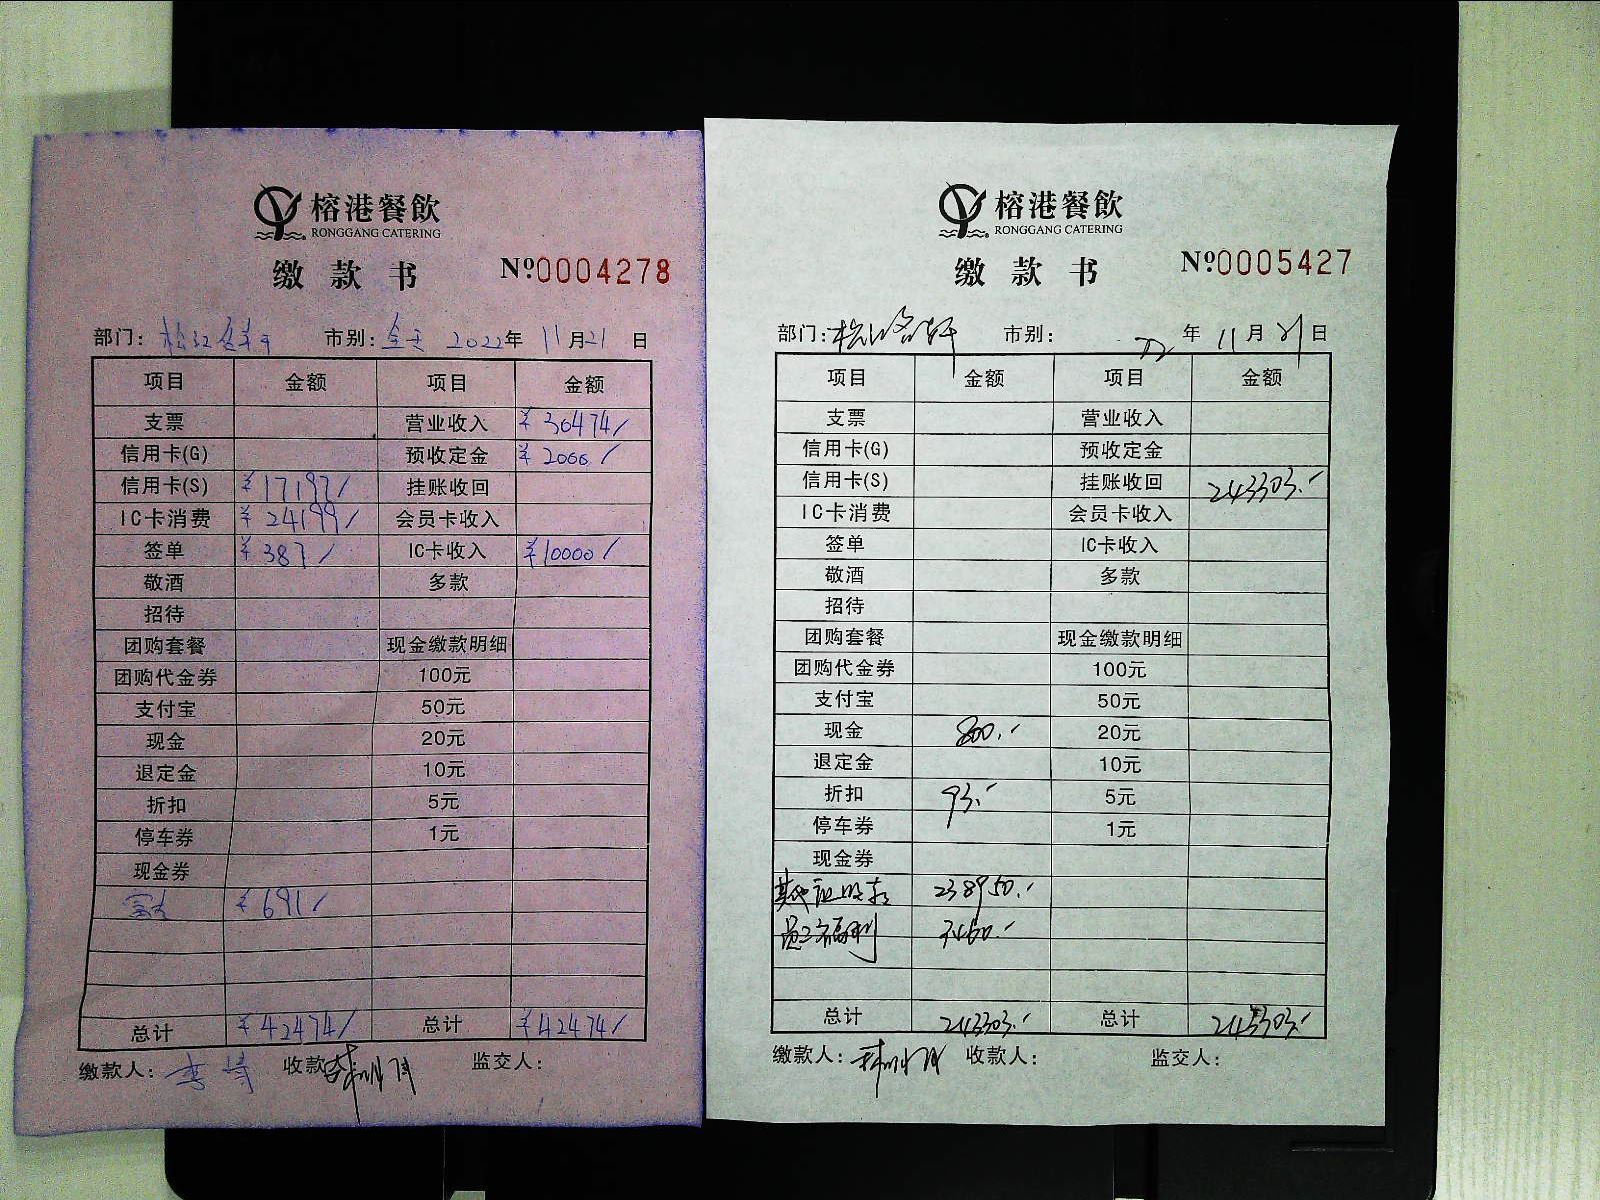 榕港餐飲
RONGGANG CATERING
缴款书 Nº0004278
部门: 市别: 全天 2022年 11月21日
项目 金额 项目 金额
支票 营业收入 ¥30474/
信用卡(G) 预收定金 ¥2000/
信用卡(S) ¥17197/ 挂账收回
IC卡消费 ¥24199/ 会员卡收入
签单 ¥387/ IC卡收入 ¥10000/
敬酒 多款
招待
团购套餐 现金缴款明细
团购代金券 100元
支付宝 50元
现金 20元
退定金 10元
折扣 5元
停车券 1元
现金券
¥691/
总计 ¥42474/ 总计 ¥42474/
缴款人: 收款 监交人:
榕港餐飲
RONGGANG CATERING
缴款书 Nº0005427
部门: 市别: 22年 11月21日
项目 金额 项目 金额
支票 营业收入
信用卡(G) 预收定金
信用卡(S) 挂账收回 243303.-
IC卡消费 会员卡收入
签单 IC卡收入
敬酒 多款
招待
团购套餐 现金缴款明细
团购代金券 100元
支付宝 50元
现金 800.- 20元
退定金 10元
折扣 93.- 5元
停车券 1元
现金券
其他应收款 238950.-
员工福利 3460.-
总计 243303.- 总计 243303.-
缴款人: 收款人: 监交人: